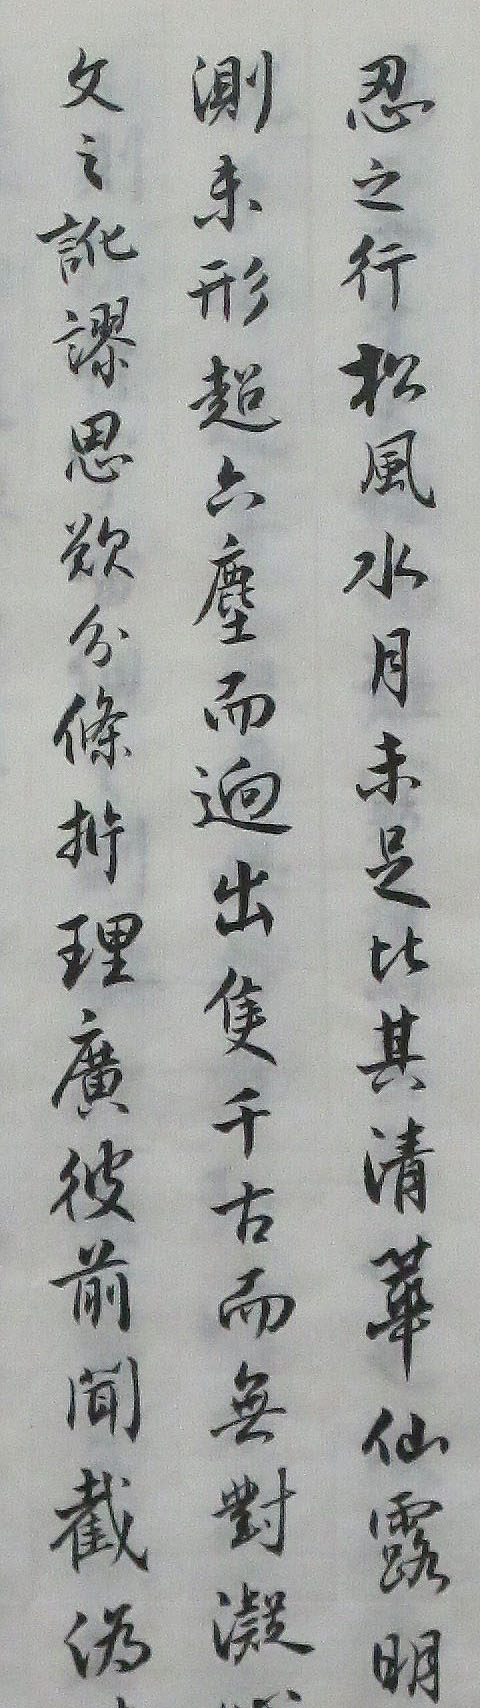 忍之行松風水月未足比其清華仙露明
測未形超六塵而迥出隻千古而無對凝
文之訛謬思欲分條析理廣彼前聞截偽